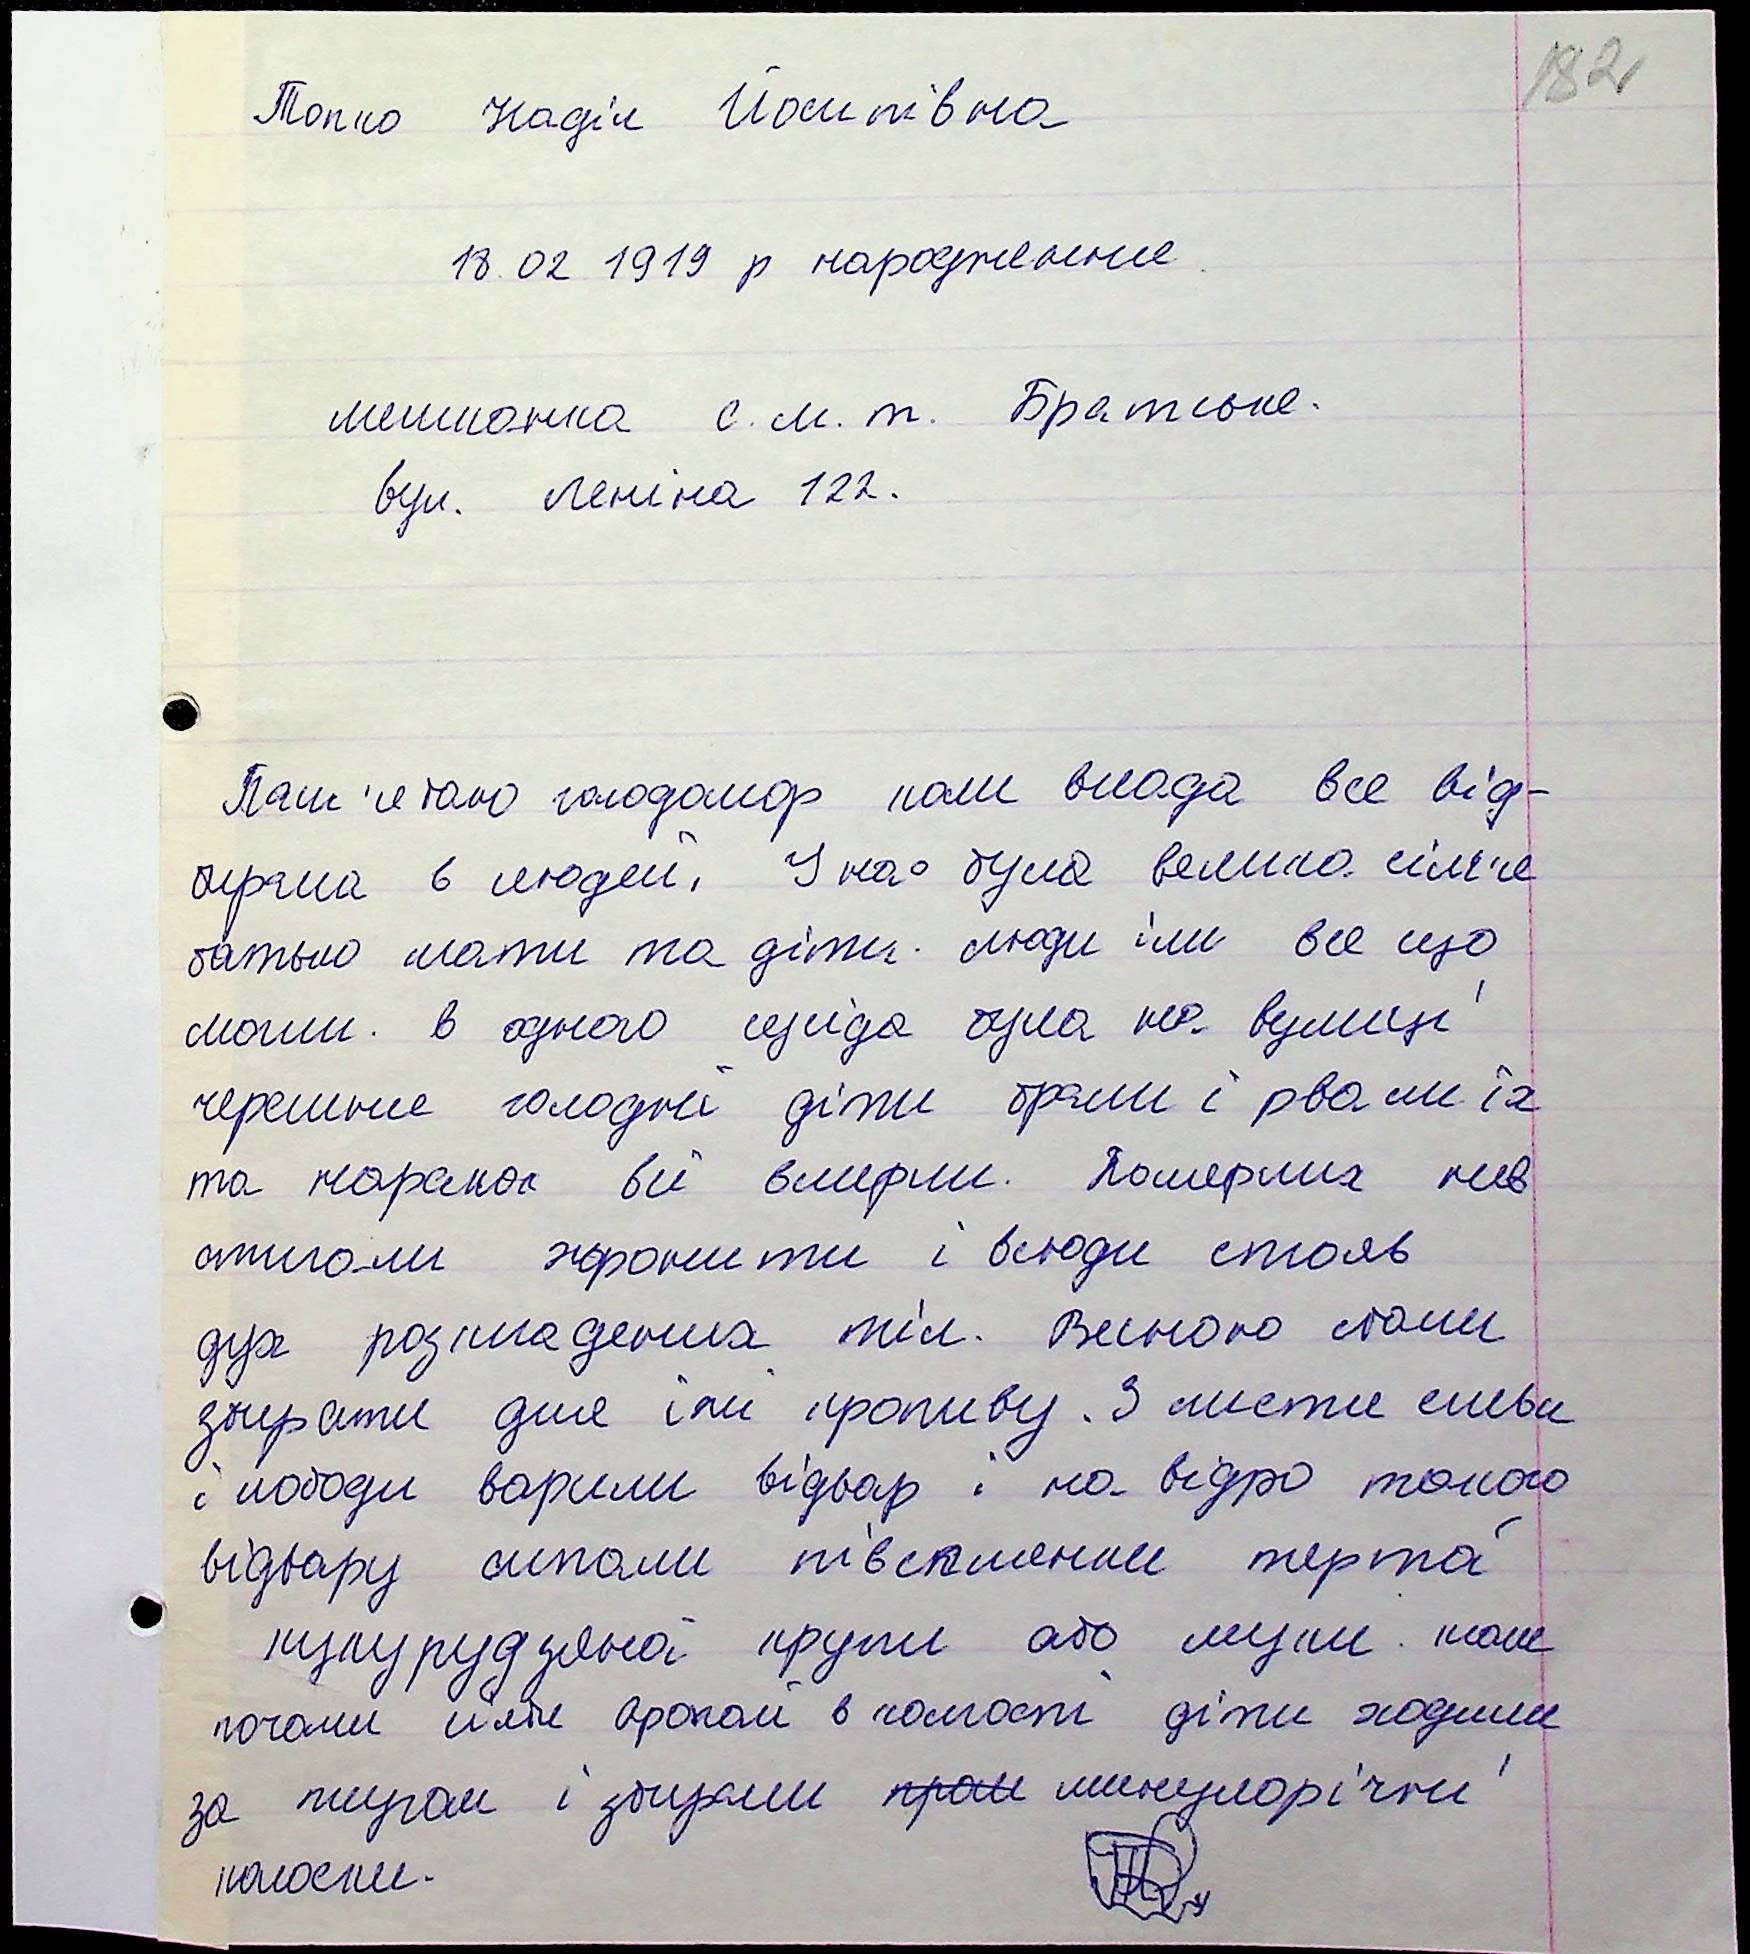 182
Топко Надія Йосипівна
18.02 1919 р народження
мешканка с.м.т. Братське.
вул. Леніна 122.
Пам'ятаю голодомор коли влада все від-
бирала в людей, У нас була велика сім'я
батько мати та діти. люди їли все що
могли. в одного сусіда була на вулиці
черешня голодні діти брали і рвали їх
та наранок всі вмерли. Померлих нев
стигали хоронити і всюди стояв
дух розкладених тіл. Весною стали
збирати для їжі кропиву. З листя сливи
і лободи варили відвар і на відро такого
відвару сипали півсклянки тертої
кукурудзяної крупи або муки. коли
почали орати в колгоспі діти ходили
за плугом і збирали минулорічні
колоски.